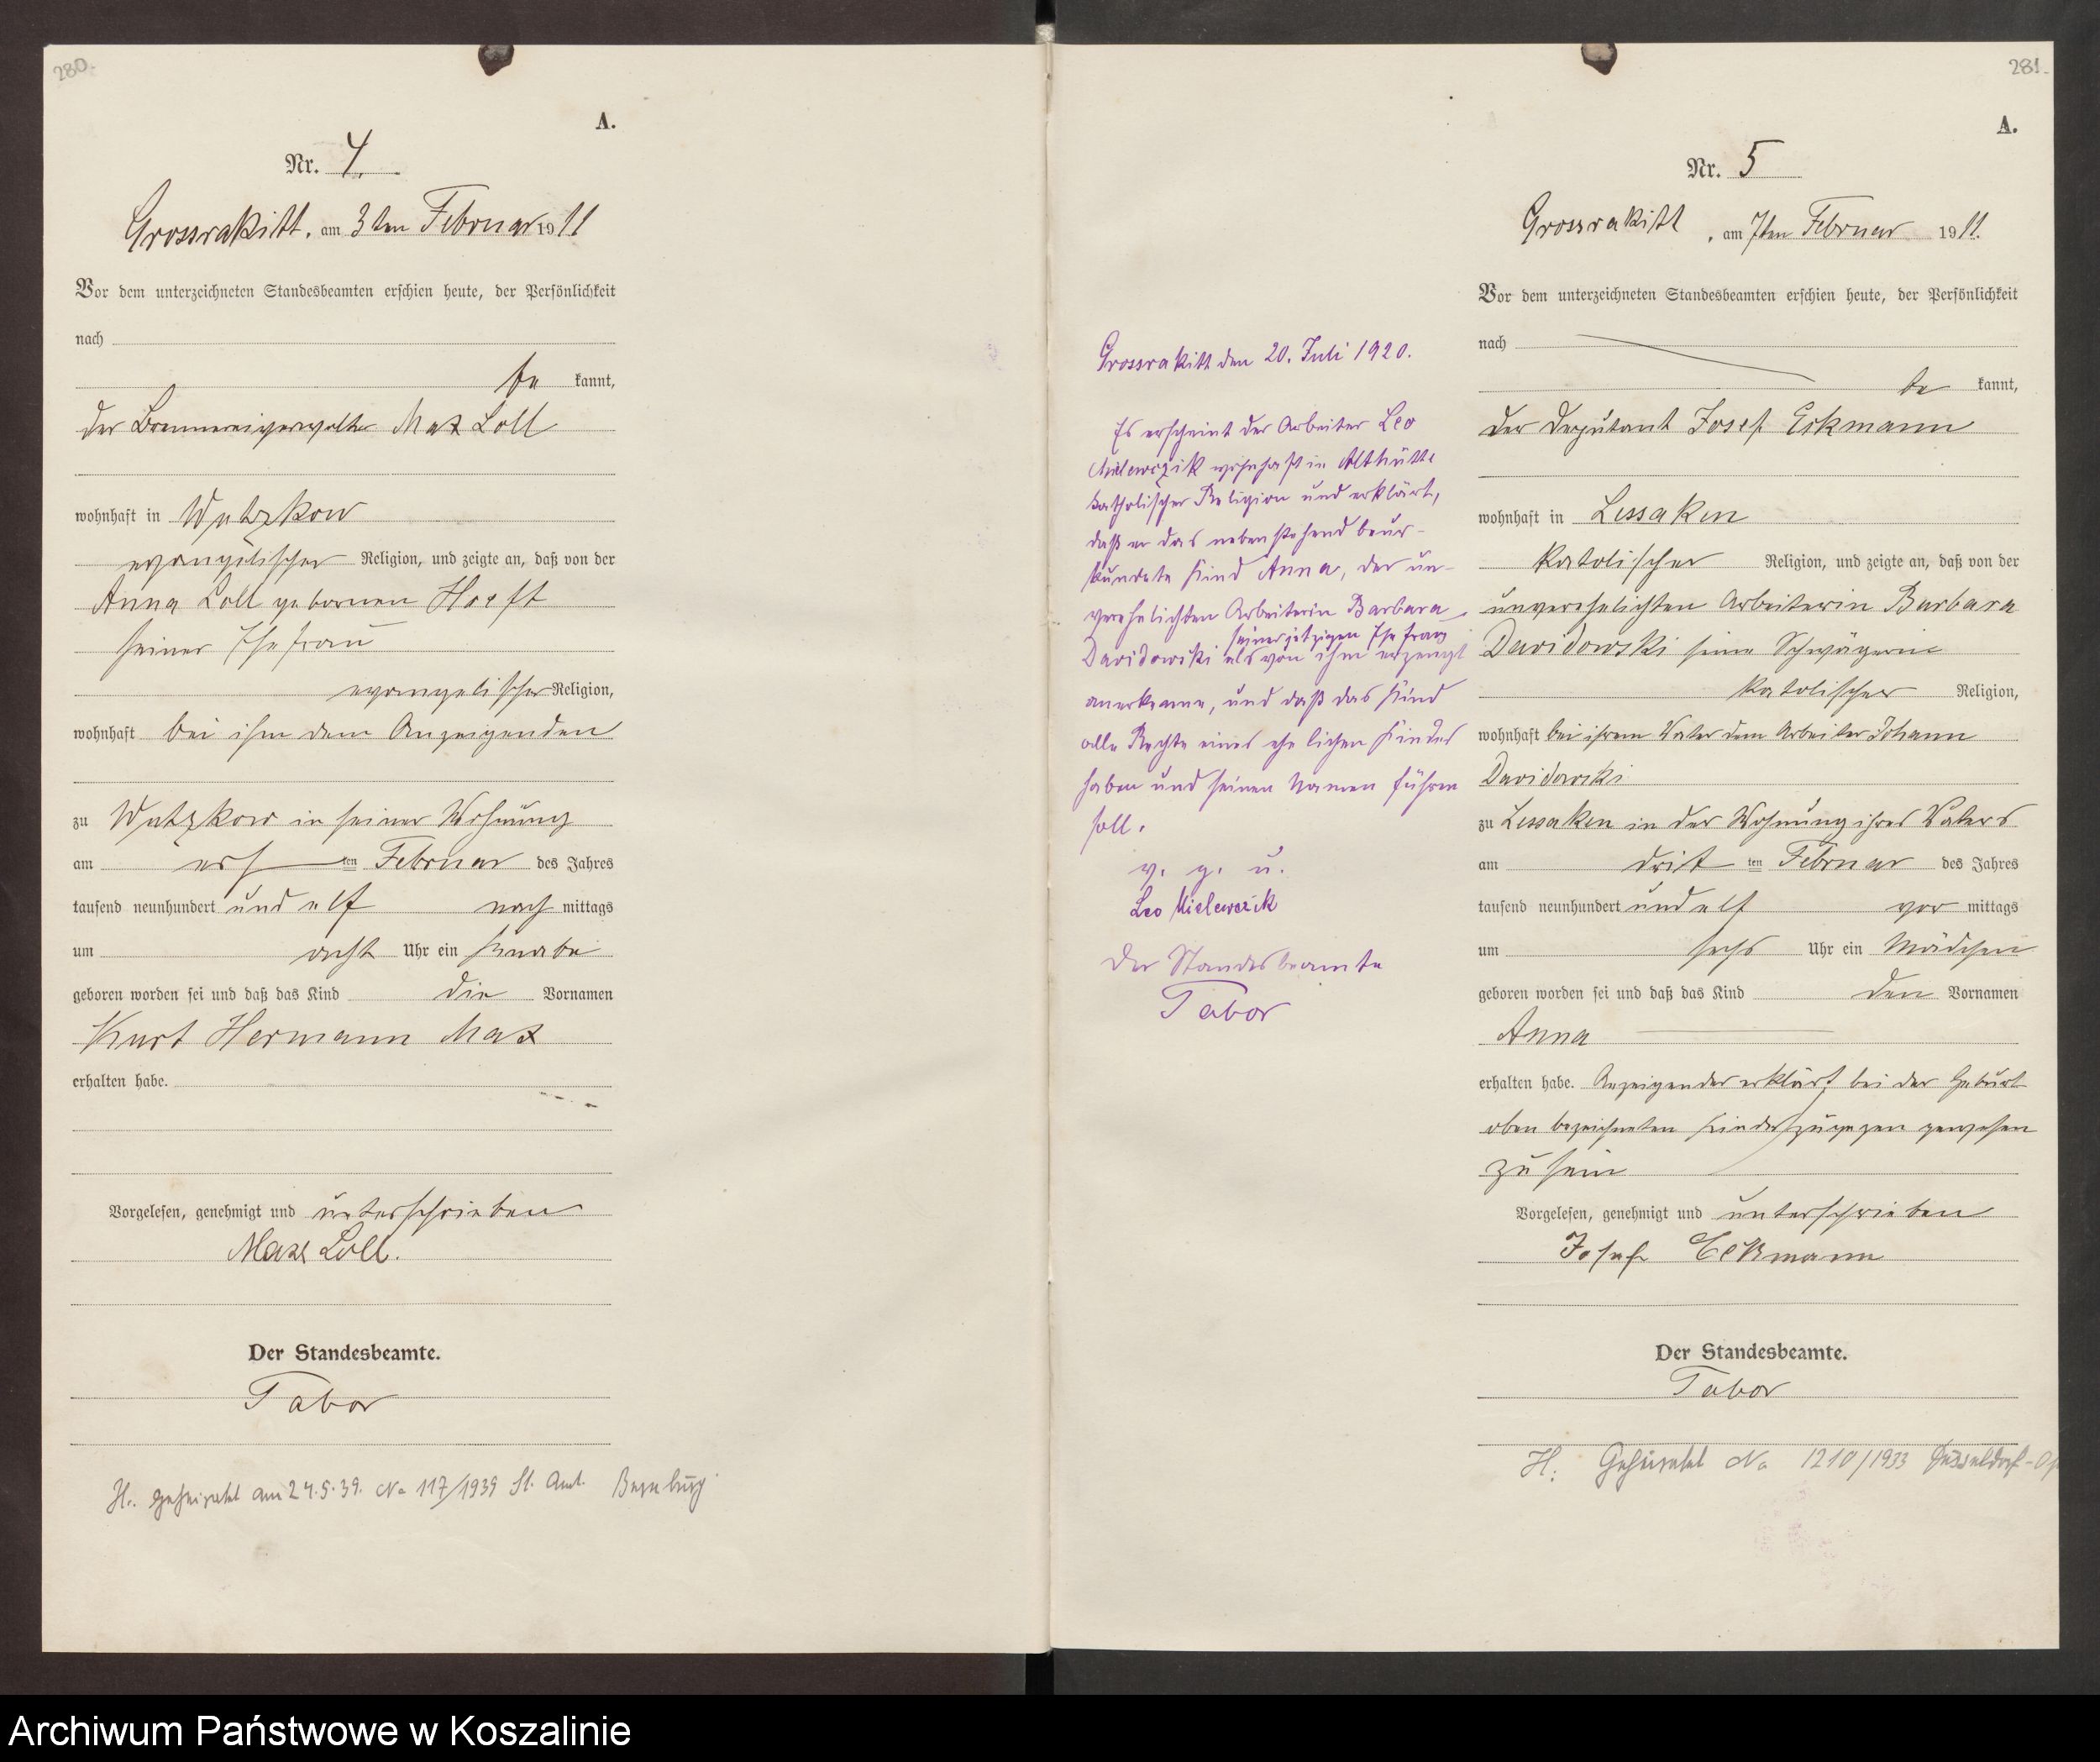 280.
A.
Nr. 4.
Grossrakitt, am 3ten Februar 1911
Vor dem unterzeichneten Standesbeamten erschien heute, der Persönlichkeit
nach
be kannt,
der Brennereiverwalter Max Loll
wohnhaft in Wutzkow
evangelischer Religion, und zeigte an, daß von der
Anna Loll gebornen Hoeft
seiner Ehefrau
evangelischer Religion,
wohnhaft bei ihm dem Anzeigenden
zu Wutzkow in seiner Wohnung
am erst ten Februar des Jahres
tausend neunhundert und elf nach mittags
um acht Uhr ein Knabe
geboren worden sei und daß das Kind die Vornamen
Kurt Hermann Max
erhalten habe.
Vorgelesen, genehmigt und unterschrieben
Max Loll.
Der Standesbeamte.
Tabor
H. geheiratet am 24.5.39. No 117/1939 St. Amt.
281.
A.
Nr. 5
Grossrakitt, am 7ten Februar 1911.
Vor dem unterzeichneten Standesbeamten erschien heute, der Persönlichkeit
nach
be kannt,
der Deputant Josef Eckmann
wohnhaft in Lessaken
katolischer Religion, und zeigte an, daß von der
unverehelichten Arbeiterin Barbara
Davidowski seine Schwägerin
katolischer Religion,
wohnhaft bei ihrem Vater dem Arbeiter Johann
Davidowski
zu Lessaken in der Wohnung ihres Vaters
am drit ten Februar des Jahres
tausend neunhundert und elf vor mittags
um sechs Uhr ein Mädchen
geboren worden sei und daß das Kind den Vornamen
Anna
erhalten habe. Anzeigender erklärt bei der Geburt
oben bezeichneten Kindes zugegen gewesen
zu sein
Vorgelesen, genehmigt und unterschrieben
Josef Eckmann
Der Standesbeamte.
Tabor
H: Geheiratet No 1210/1933 Düsseldorf-
Grossrakitt den 20. Juli 1920.
Es erscheint der Arbeiter Leo
Mielewczik wohnhaft in Althütte
katholischer Religion und erklärt,
daß er das nebenstehend beur-
kundete Kind Anna, der un-
verehelichten Arbeiterin Barbara
seiner jetzigen Ehefrau
Davidowski als von ihm erzeugt
anerkenne, und daß das Kind
alle Rechte eines ehelichen Kindes
haben und seinen Namen führen
soll.
v. g. u.
Leo Mielewczik
Der Standesbeamte
Tabor
Archiwum Państwowe w Koszalinie